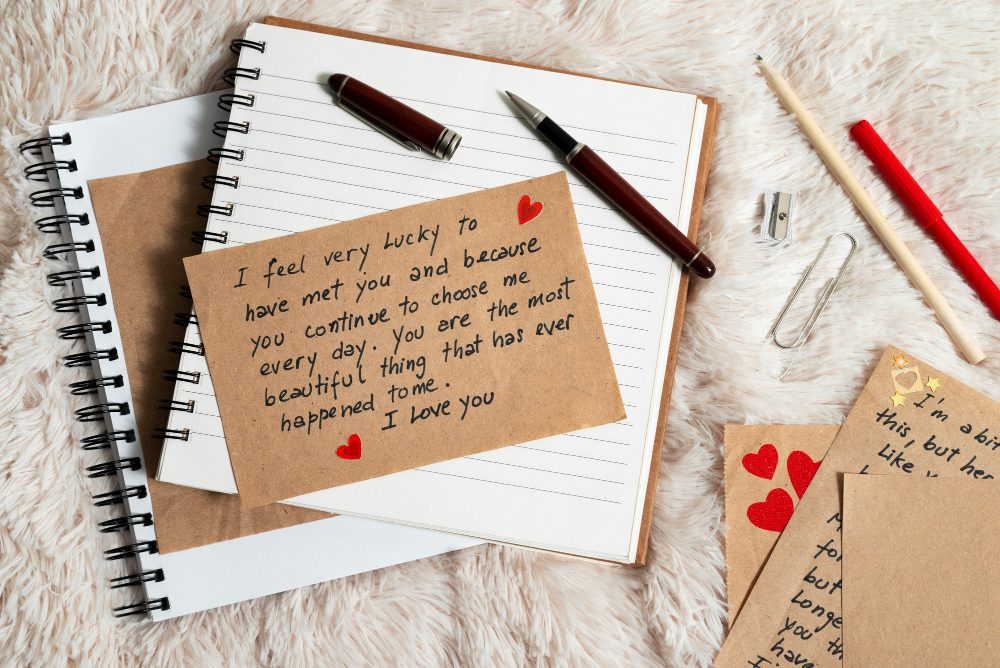 I feel very Lucky to
have met you and because
you continue to choose me
every day. You are the most
beautiful thing that has ever
happened to me.
I Love you
I'm a bit
this, but her
Like
for
but
Longe
you th
have